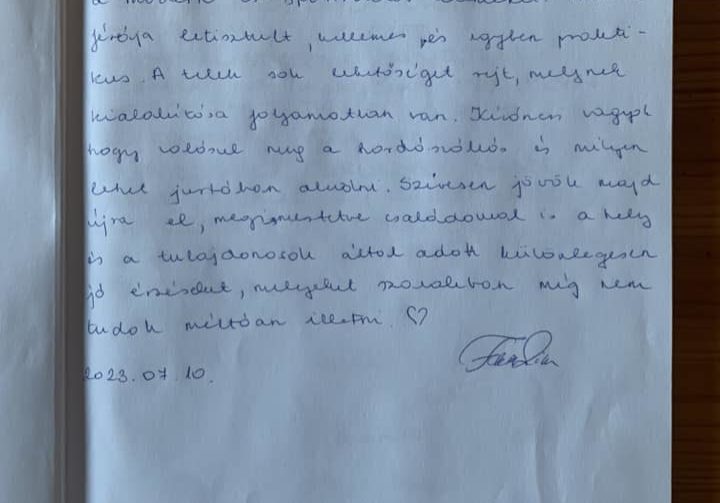 a
férája letisztult, kellemes és egyben prakti-
kus. A telek sok lehetőséget rejt, melynek
kialakítása folyamatban van. Kíváncsi vagyok
hogy valósul meg a hordószállás és milyen
lehet jurtában aludni. Szívesen jövök majd
újra el, megismertetve családommal is a hely
és a tulajdonosok által adott különlegesen
jó érzéseket, melyeket szavakban még nem
tudok méltóan illetni. ♡
2023.07.10.